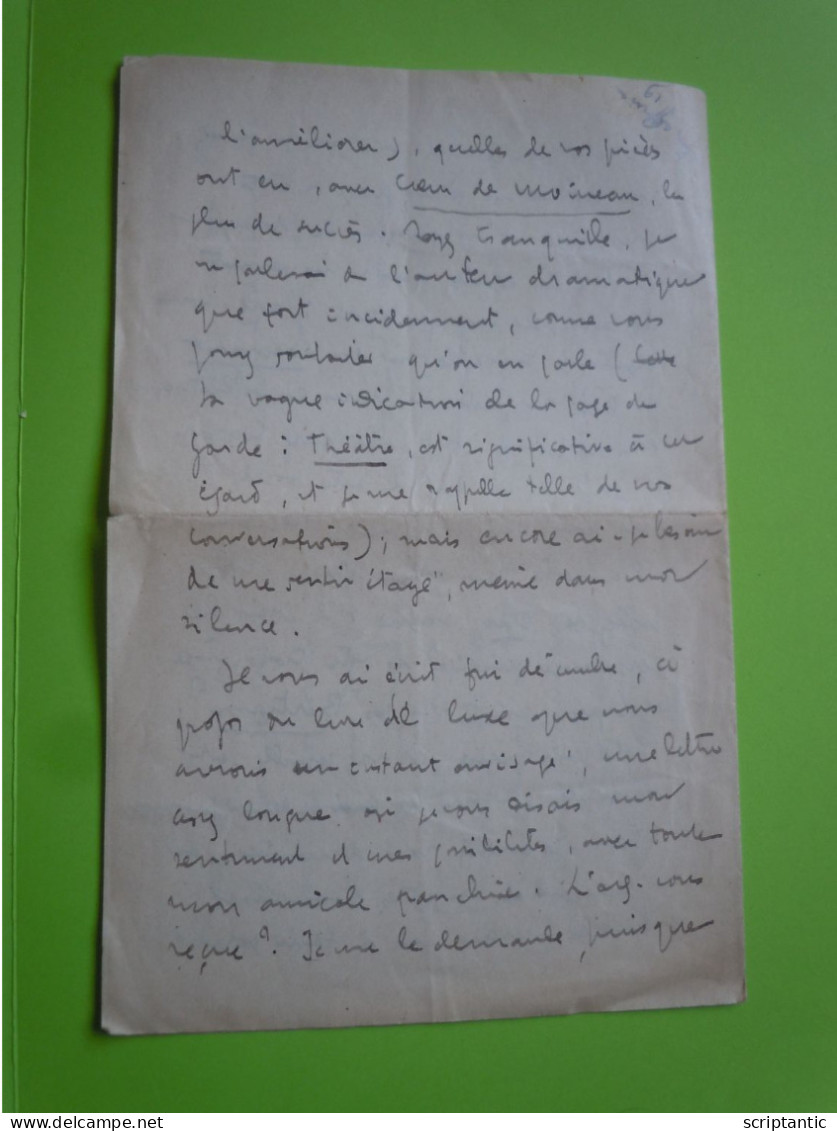 l'améliorer), quelles de vos pièces
ont eu, avec Cœur de Moineau, le
plus de succès. Soyez tranquille, je
ne parlerai de l'auteur dramatique
que fort incidemment, comme vous
souhaiter qu'on en parle (
la vague indication de la page de
garde : Théâtre, est significative à cet
égard, et je me rappelle telle de nos
conversations) ; mais encore ai-je besoin
de me sentir étayé, même dans mon
silence.
Je vous ai écrit fin décembre, à
propos du livre de luxe que nous
avions un instant envisagé, une lettre
assez longue où je vous disais mon
sentiment et mes possibilités, avec toute
mon amicale franchise. L'avez-vous
reçue ? Je me le demande, puisque
scriptantic